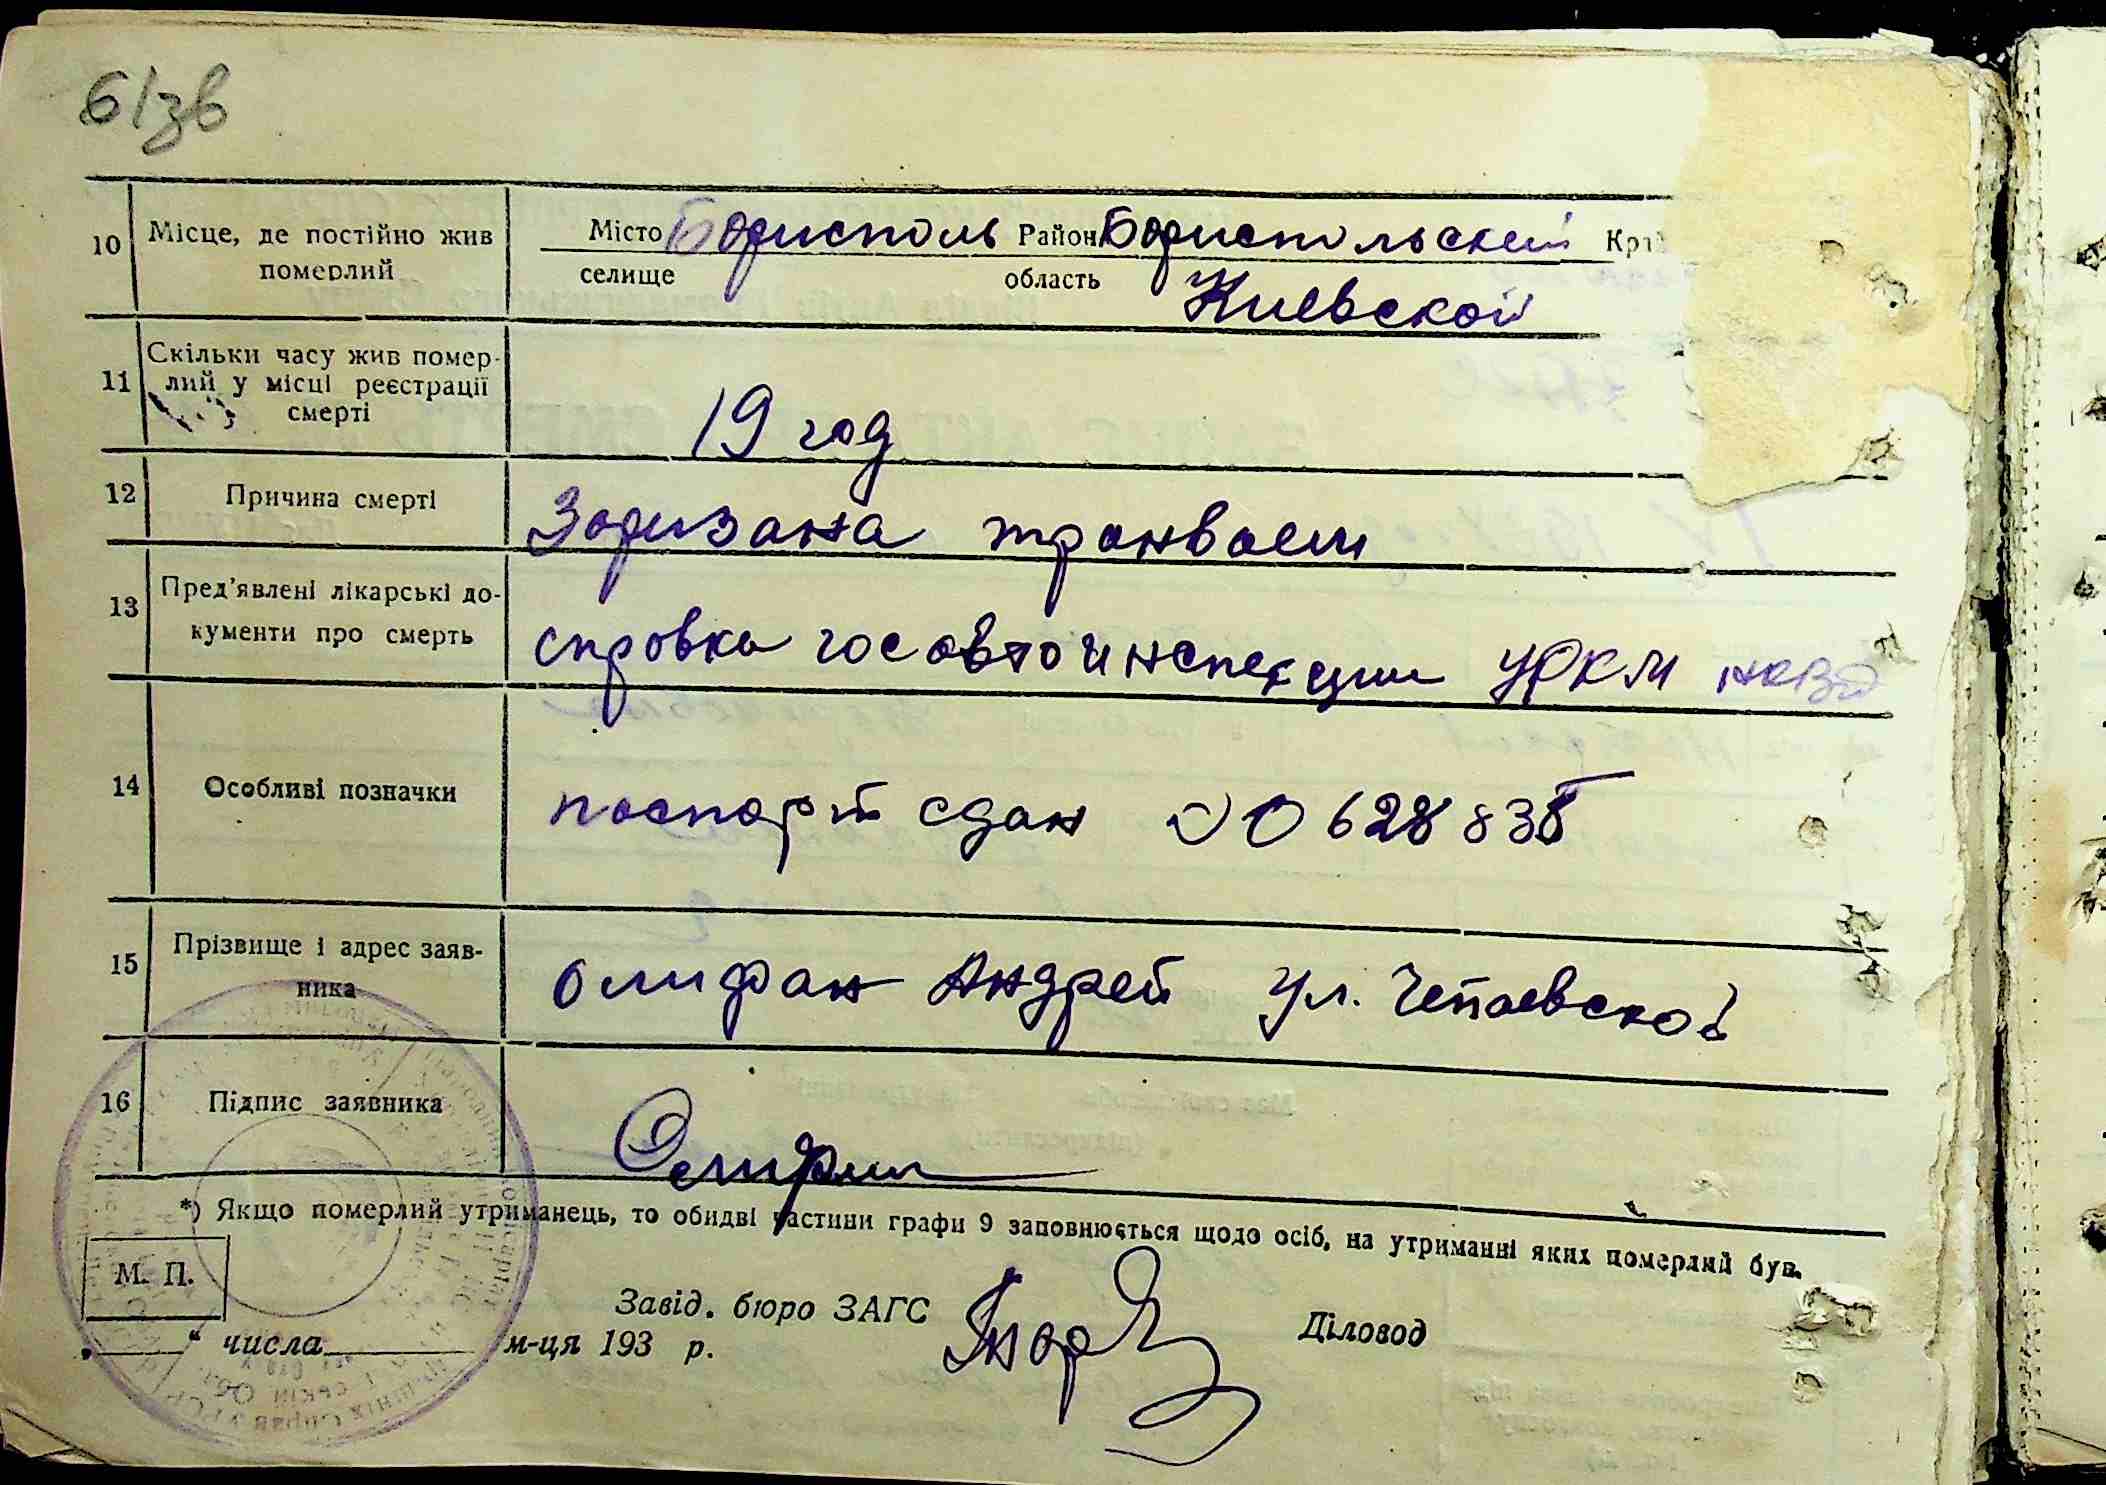 6/зв
10 Місце, де постійно жив померлий
Місто Борисполь Район Бориспольский
селище область Киевской
11 Скільки часу жив помер-
лий у місці реєстрації
смерті
19 год
12 Причина смерті Заризана транваем
13 Пред'явлені лікарські до-
кументи про смерть
справка госавтоинспекции УРКМ НКВД
14 Особливі позначки паспорт сдан
15 Прізвище і адрес заяв-
ника
Олифан Андрей ул. Чепаевской
16 Підпис заявника
*) Якщо померлий утриманець, то обидві частини графи 9 заповнюється щодо осіб, на утриманні яких померлий був.
М. П.
Завід. бюро ЗАГС Діловод
„ “ числа м-ця 193 р.